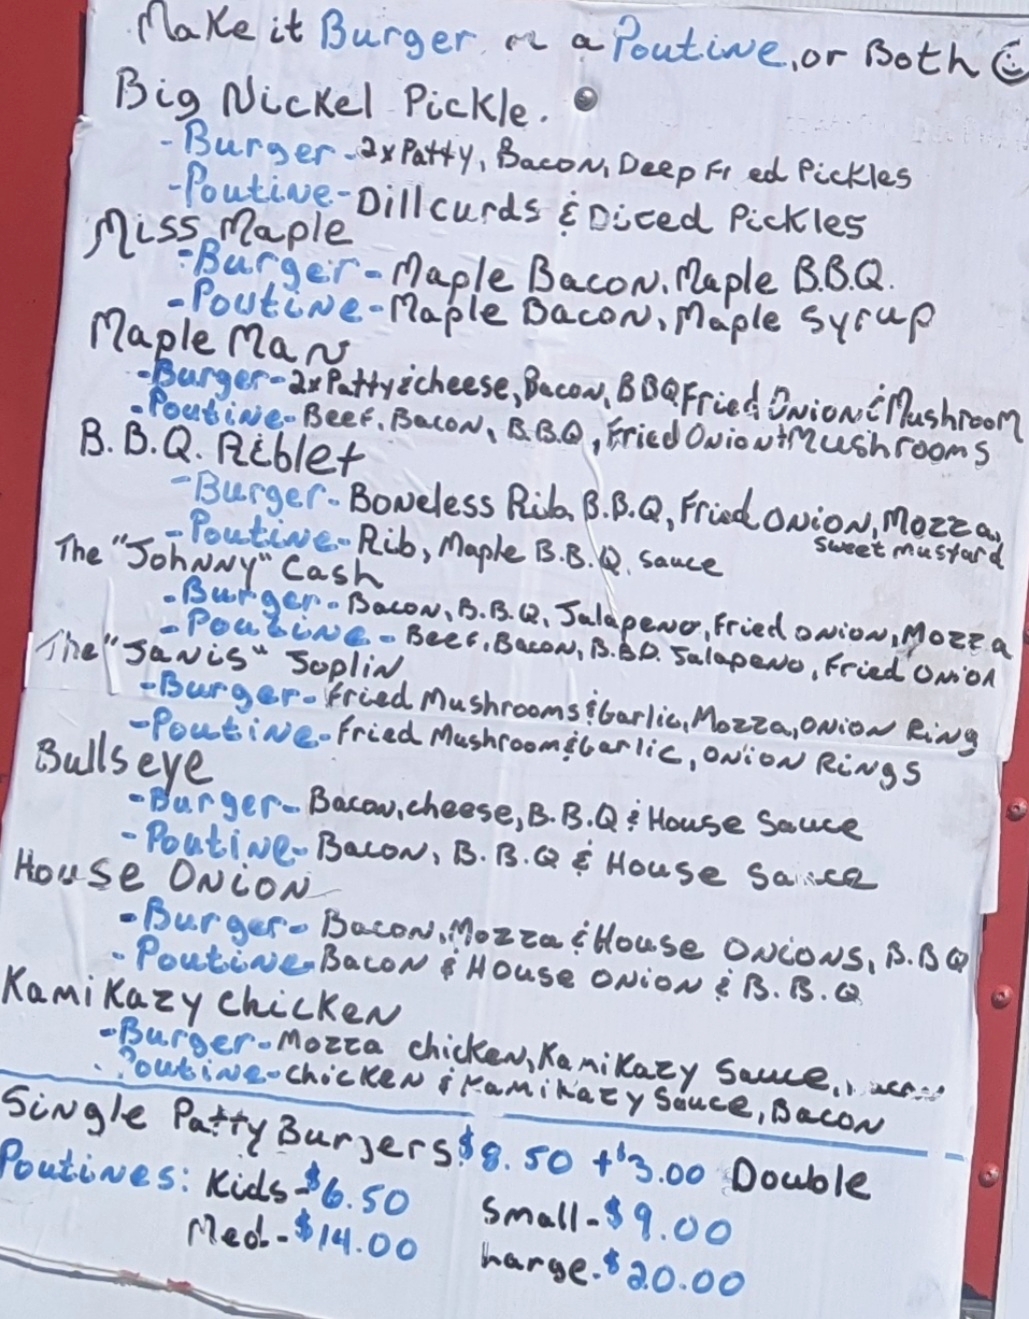 Make it Burger or a Poutine, or Both
Big Nickel Pickle.
-Burger-2xPatty, Bacon, Deep Fried Pickles
-Poutine-Dill curds & Diced Pickles
Miss Maple
-Burger-Maple Bacon, Maple B.B.Q.
-Poutine-Maple Bacon, Maple Syrup
Maple Man
-Burger-2xPatty & cheese, Bacon, BBQ Fried Onion & Mushroom
-Poutine-Beef, Bacon, B.B.Q, Fried Onion + Mushrooms
B.B.Q. Riblet
-Burger-Boneless Rib, B.B.Q, Fried Onion, Mozza,
sweet mustard
-Poutine-Rib, Maple B.B.Q. Sauce
The "Johnny" Cash
-Burger-Bacon, B.B.Q, Jalapeno, Fried onion, Mozza
-Poutine-Beef, Bacon, B.B.Q Jalapeno, Fried Onion
The "Janis" Joplin
-Burger-Fried Mushrooms & Garlic, Mozza, Onion Ring
-Poutine-Fried Mushroom & Garlic, Onion Rings
Bullseye
-Burger-Bacon, cheese, B.B.Q & House Sauce
-Poutine-Bacon, B.B.Q & House Sauce
House Onion
-Burger-Bacon, Mozza & House Onions, B.BQ
-Poutine-Bacon & House Onion & B.B.Q
Kamikazy Chicken
-Burger-Mozza chicken, Kamikazy Sauce,
-Poutine-chicken & Kamikazy Sauce, Bacon
Single Patty Burgers $8.50 +$3.00 Double
Poutines: Kids-$6.50 Small-$9.00
Med-$14.00 Large-$20.00